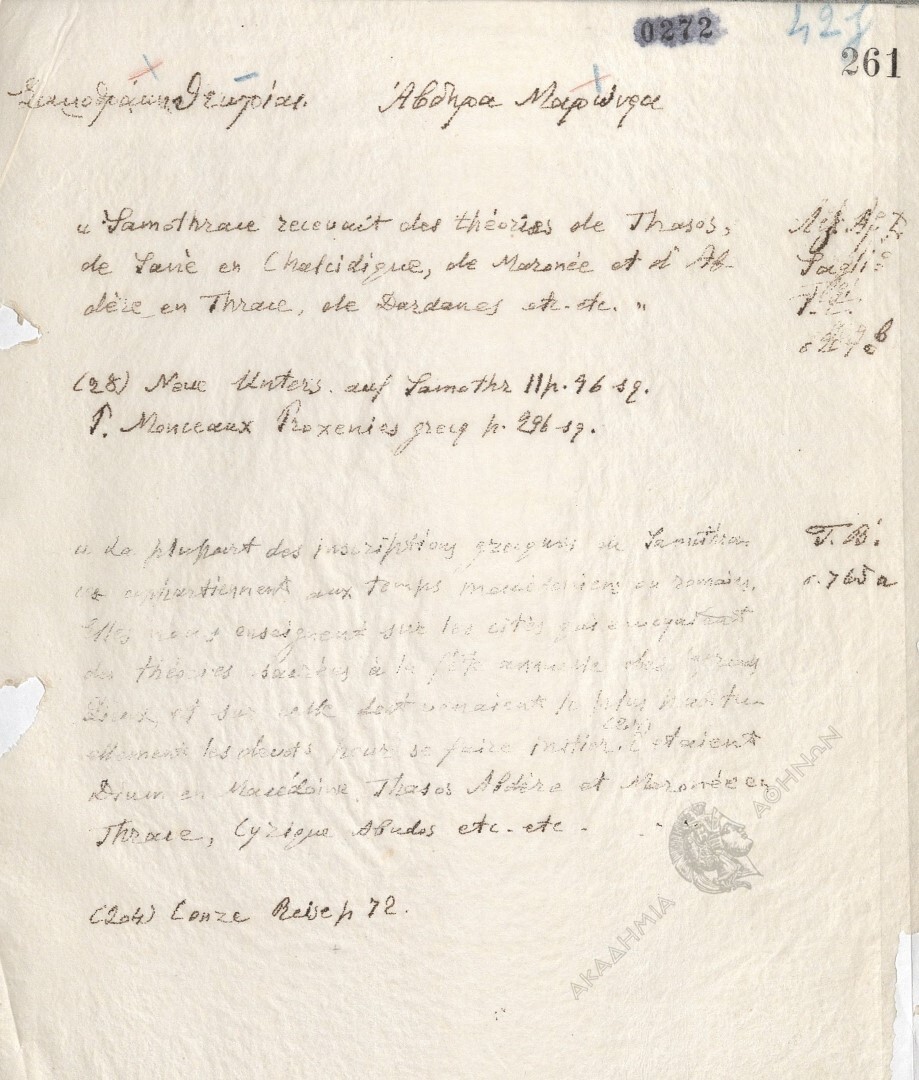 0272
421
261
Σαμοθράκη Θεωρίαι. Άβδηρα Μαρώνεα
« Samothrace recevait des théories de Thasos,
de Sané en Chalcidique, de Maronée et d'Ab-
dère en Thrace, de Dardanes etc. etc. »
Saglio
(28) Neue Unters. auf Samothr II p. 96 sq.
P. Monceaux Proxenies grecq p. 296 sq.
« La plupart des inscriptions grecques de Samothra-
ce appartiennent aux temps macédoniens ou romains.
Elles nous enseignent sur les cités qui envoyaient
des théories sacrées à la fête annuelle des grands
Dieux et sur celle dont venaient le plus habitu-
ellement les dévots pour se faire initier. C'étaient
Drum en Macédoine Thasos Abdère et Maronée en
Thrace, Cyzique Abudos etc. etc.
Τ. Β΄.
σ. 765 a
(204) Conze Reise p 72.
ΑΚΑΔΗΜΙΑ ΑΘΗΝΩΝ